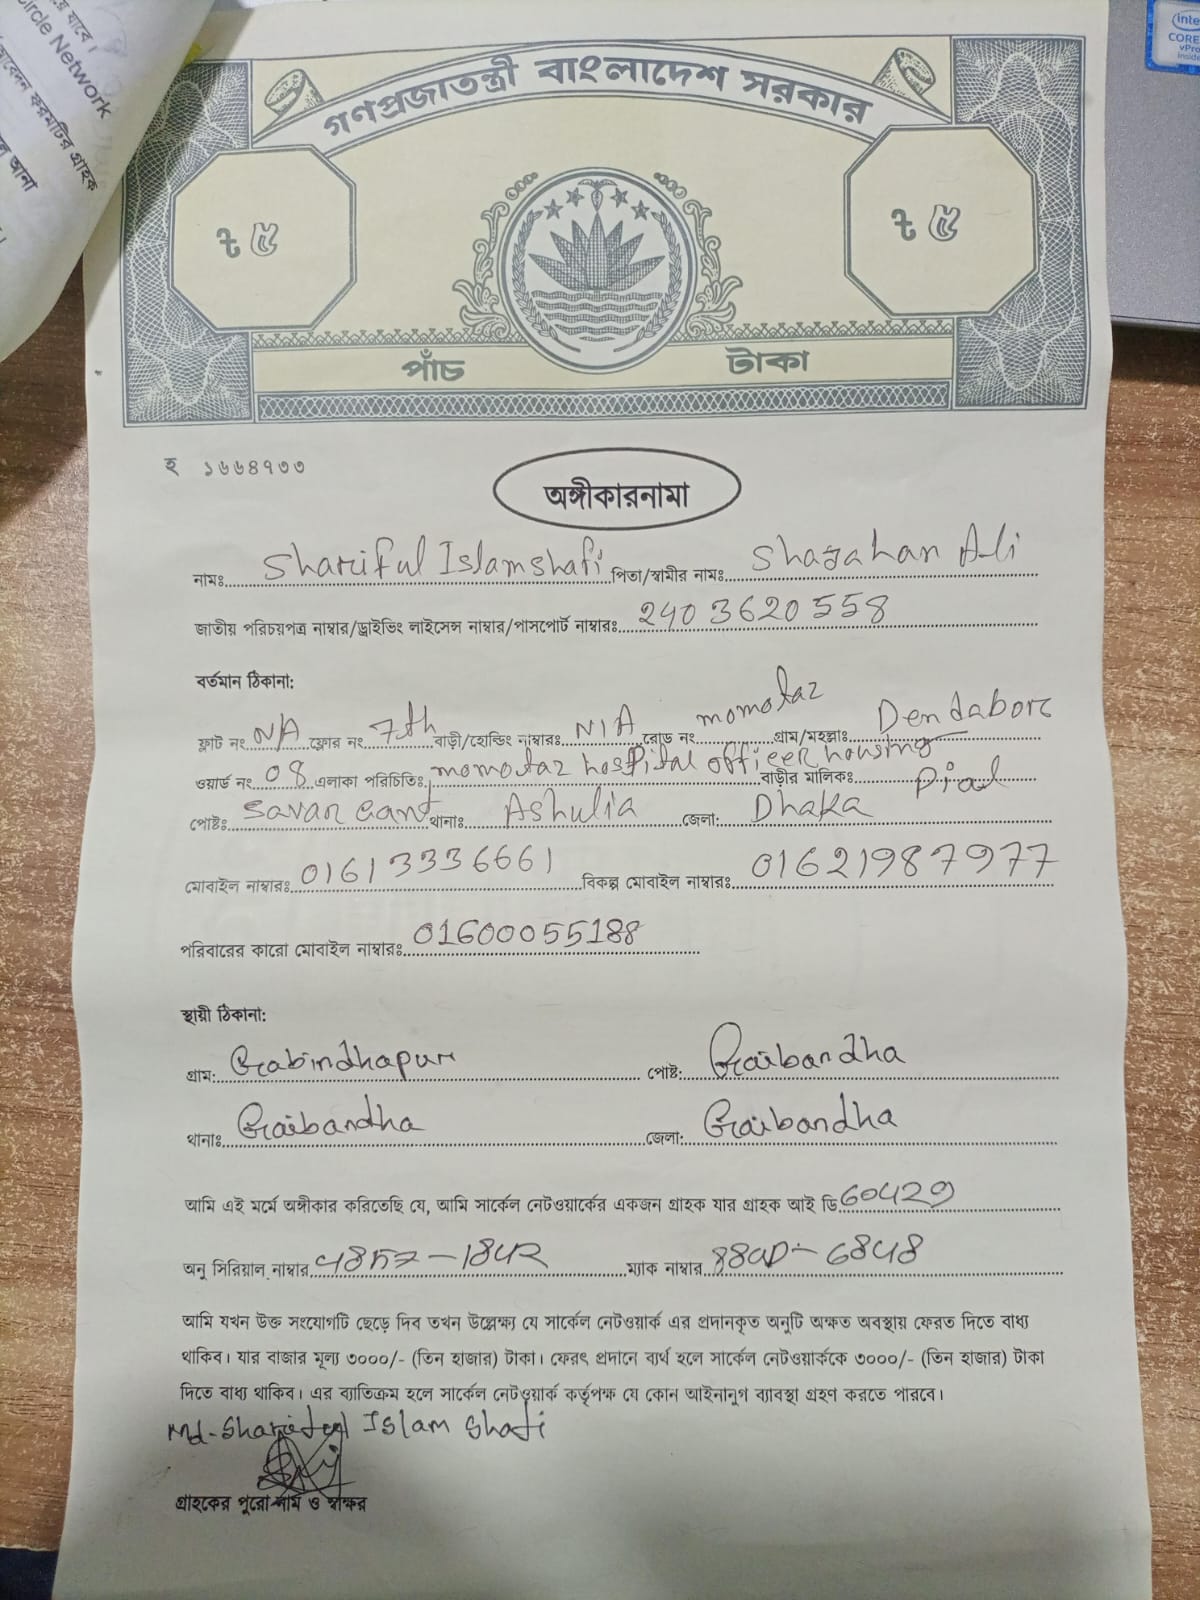 যাবে।
ircle Network
আবেদন ফরমটির গ্রাহক
আনা
intel
CORE
vPro
inside
গণপ্রজাতন্ত্রী বাংলাদেশ সরকার
৳ ৫
৳ ৫
পাঁচ টাকা
হ ১৬৬৪৭৩৩
অঙ্গীকারনামা
নামঃ Shariful Islam shafi পিতা/স্বামীর নামঃ Shajahan Ali
জাতীয় পরিচয়পত্র নাম্বার/ড্রাইভিং লাইসেন্স নাম্বার/পাসপোর্ট নাম্বারঃ 2403620558
বর্তমান ঠিকানা:
ফ্লাট নং N/A ফ্লোর নং 7th বাড়ী/হোল্ডিং নাম্বারঃ N/A রোড নং momotaz গ্রাম/মহল্লাঃ Dendabore
ওয়ার্ড নং 08 এলাকা পরিচিতিঃ momotaz hospital officer housing বাড়ীর মালিকঃ Pial
পোষ্টঃ Savar Cant থানাঃ Ashulia জেলা: Dhaka
মোবাইল নাম্বারঃ 01613336661 বিকল্প মোবাইল নাম্বারঃ 01621987977
পরিবারের কারো মোবাইল নাম্বারঃ 01600055188
স্থায়ী ঠিকানা:
গ্রাম: Gabindhapur পোষ্ট: Gaibandha
থানাঃ Gaibandha জেলা: Gaibandha
আমি এই মর্মে অঙ্গীকার করিতেছি যে, আমি সার্কেল নেটওয়ার্কের একজন গ্রাহক যার গ্রাহক আই ডি 60429
অনু সিরিয়াল নাম্বার ম্যাক নাম্বার
আমি যখন উক্ত সংযোগটি ছেড়ে দিব তখন উল্লেক্ষ্য যে সার্কেল নেটওয়ার্ক এর প্রদানকৃত অনুটি অক্ষত অবস্থায় ফেরত দিতে বাধ্য
থাকিব। যার বাজার মূল্য ৩০০০/- (তিন হাজার) টাকা। ফেরৎ প্রদানে ব্যর্থ হলে সার্কেল নেটওয়ার্ককে ৩০০০/- (তিন হাজার) টাকা
দিতে বাধ্য থাকিব। এর ব্যাতিক্রম হলে সার্কেল নেটওয়ার্ক কর্তৃপক্ষ যে কোন আইনানুগ ব্যাবস্থা গ্রহণ করতে পারবে।
Md. Shariful Islam Shafi
গ্রাহকের পুরো নাম ও স্বাক্ষর